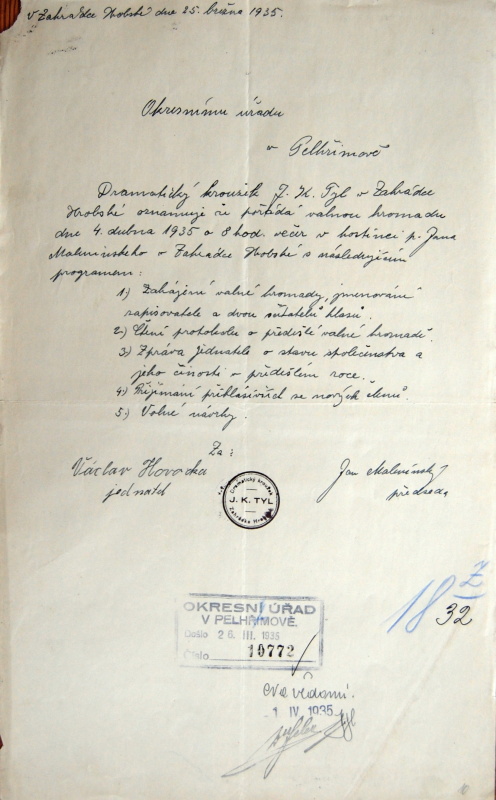 V Zahrádce Hrobské dne 25. března 1935.
Okresnímu úřadu
v Pelhřimově
Dramatický kroužek J. K. Tyl v Zahrádce
Hrobské oznamuje že pořádá valnou hromadu
dne 4. dubna 1935 o 8 hod. večer v hostinci p. Jana
Malevínského v Zahrádce Hrobské s následujícím
programem:
1.) Zahájení valné hromady, jmenování
zapisovatele a dvou sčitatelů hlasů.
2.) Čtení protokolu o předešlé valné hromadě.
3.) Zpráva jednatele o stavu společenstva a
jeho činosti v předešlém roce.
4.) Přijímání přihlásivších se nových členů.
5.) Volné návrhy.
Za:
Václav Hovorka
jednatel
Jan Malevínský
předseda
Dramatický kroužek
J. K. TYL
Zahrádka
18 Z
32
OKRESNÍ ÚŘAD
V PELHŘIMOVĚ.
Došlo 26. III. 1935
Číslo 10772
Na vědomí.
1 IV 1935